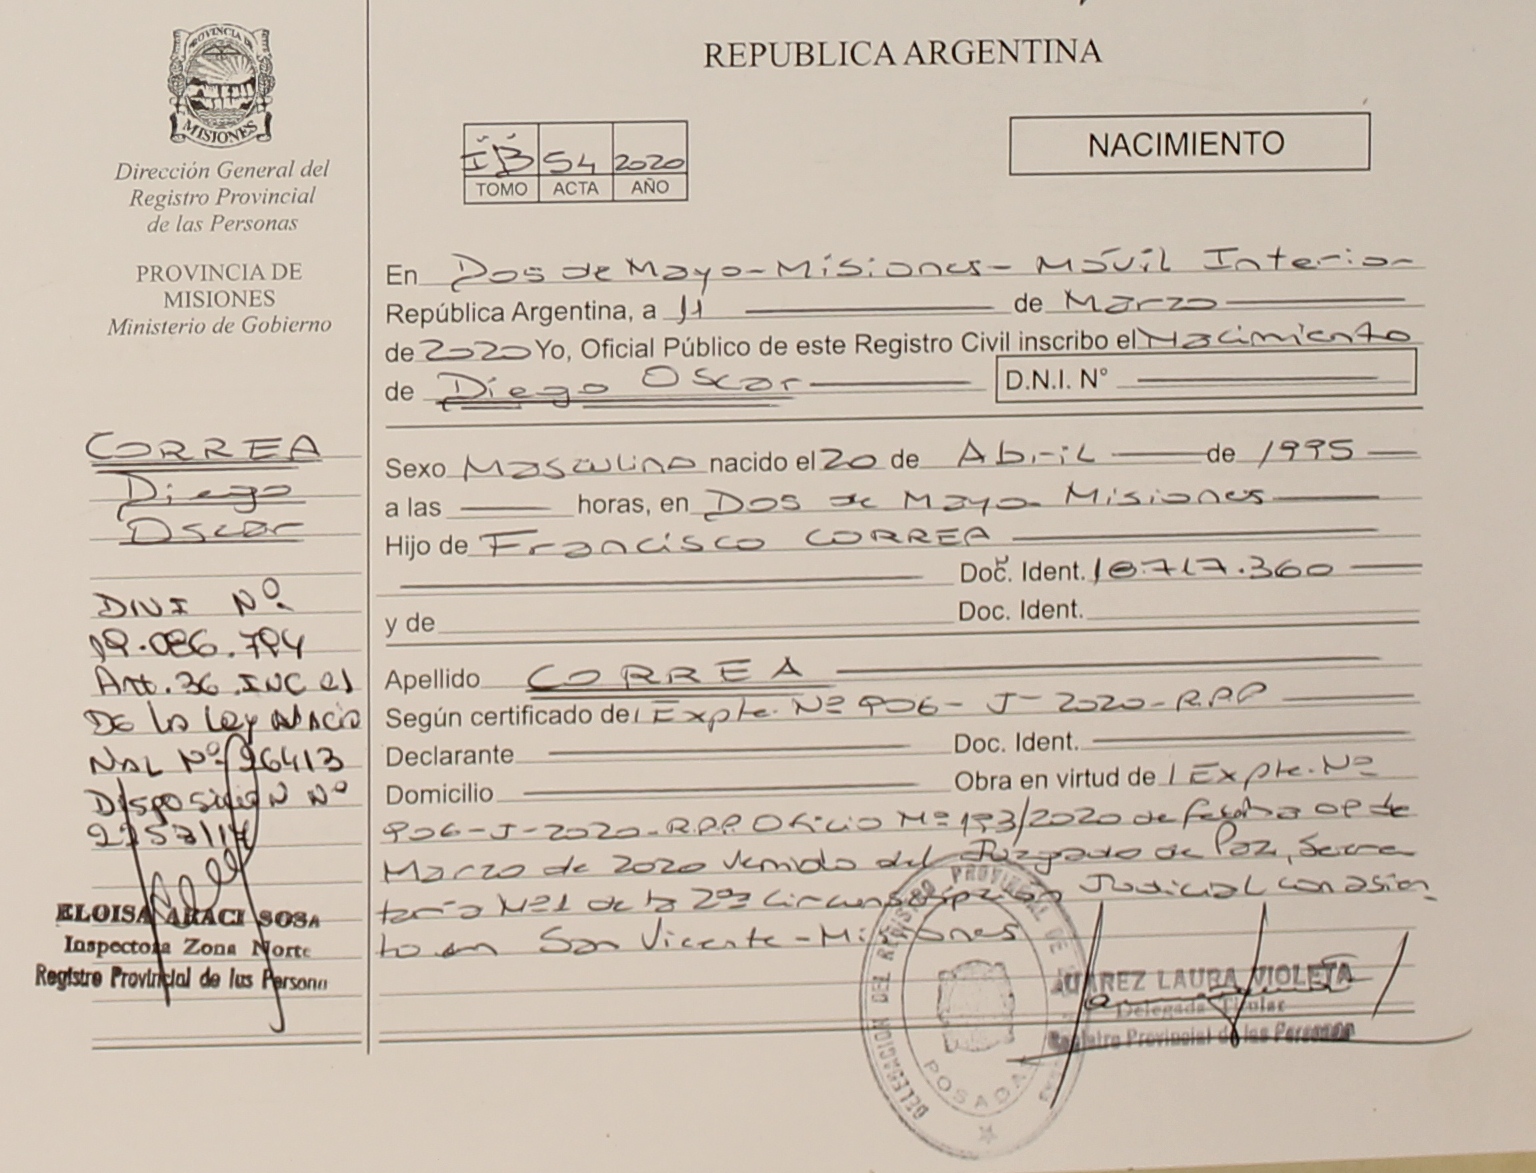 PROVINCIA DE
MISIONES
Dirección General del
Registro Provincial
de las Personas
PROVINCIA DE
MISIONES
Ministerio de Gobierno
CORREA
Diego
Oscar
DNI Nº
19.086.794
Art. 36 INC e)
DE la Ley NACIO
NAL Nº 26413
Disposición Nº
2253/17
ELOISA ARACI SOSA
Inspectora Zona Norte
Registro Provincial de las Persona
REPUBLICA ARGENTINA
IB 54 2020
TOMO ACTA AÑO
NACIMIENTO
En Dos de Mayo-Misiones-Móvil Interior
República Argentina, a 11 de Marzo
de 2020 Yo, Oficial Público de este Registro Civil inscribo el Nacimiento
de Diego Oscar D.N.I. N°
Sexo Masculino nacido el 20 de Abril de 1995
a las horas, en Dos de Mayo Misiones
Hijo de Francisco CORREA
Doc. Ident. 18.717.360
y de Doc. Ident.
Apellido CORREA
Según certificado del Expte. Nº 906-J-2020-R.P.P
Declarante Doc. Ident.
Domicilio Obra en virtud de / Expte. Nº
906-J-2020-R.P.P. Oficio Nº 193/2020 de fecha 09 de
Marzo de 2020 venido del Juzgado de Paz, Secre
taría Nº1 de la 2da Circunscripción Judicial con asien
to en San Vicente-Misiones
DELEGACION DEL REGISTRO PROVINCIAL DE
POSADAS
JUAREZ LAURA VIOLETA
Delegada Titular
Registro Provincial de las Personas